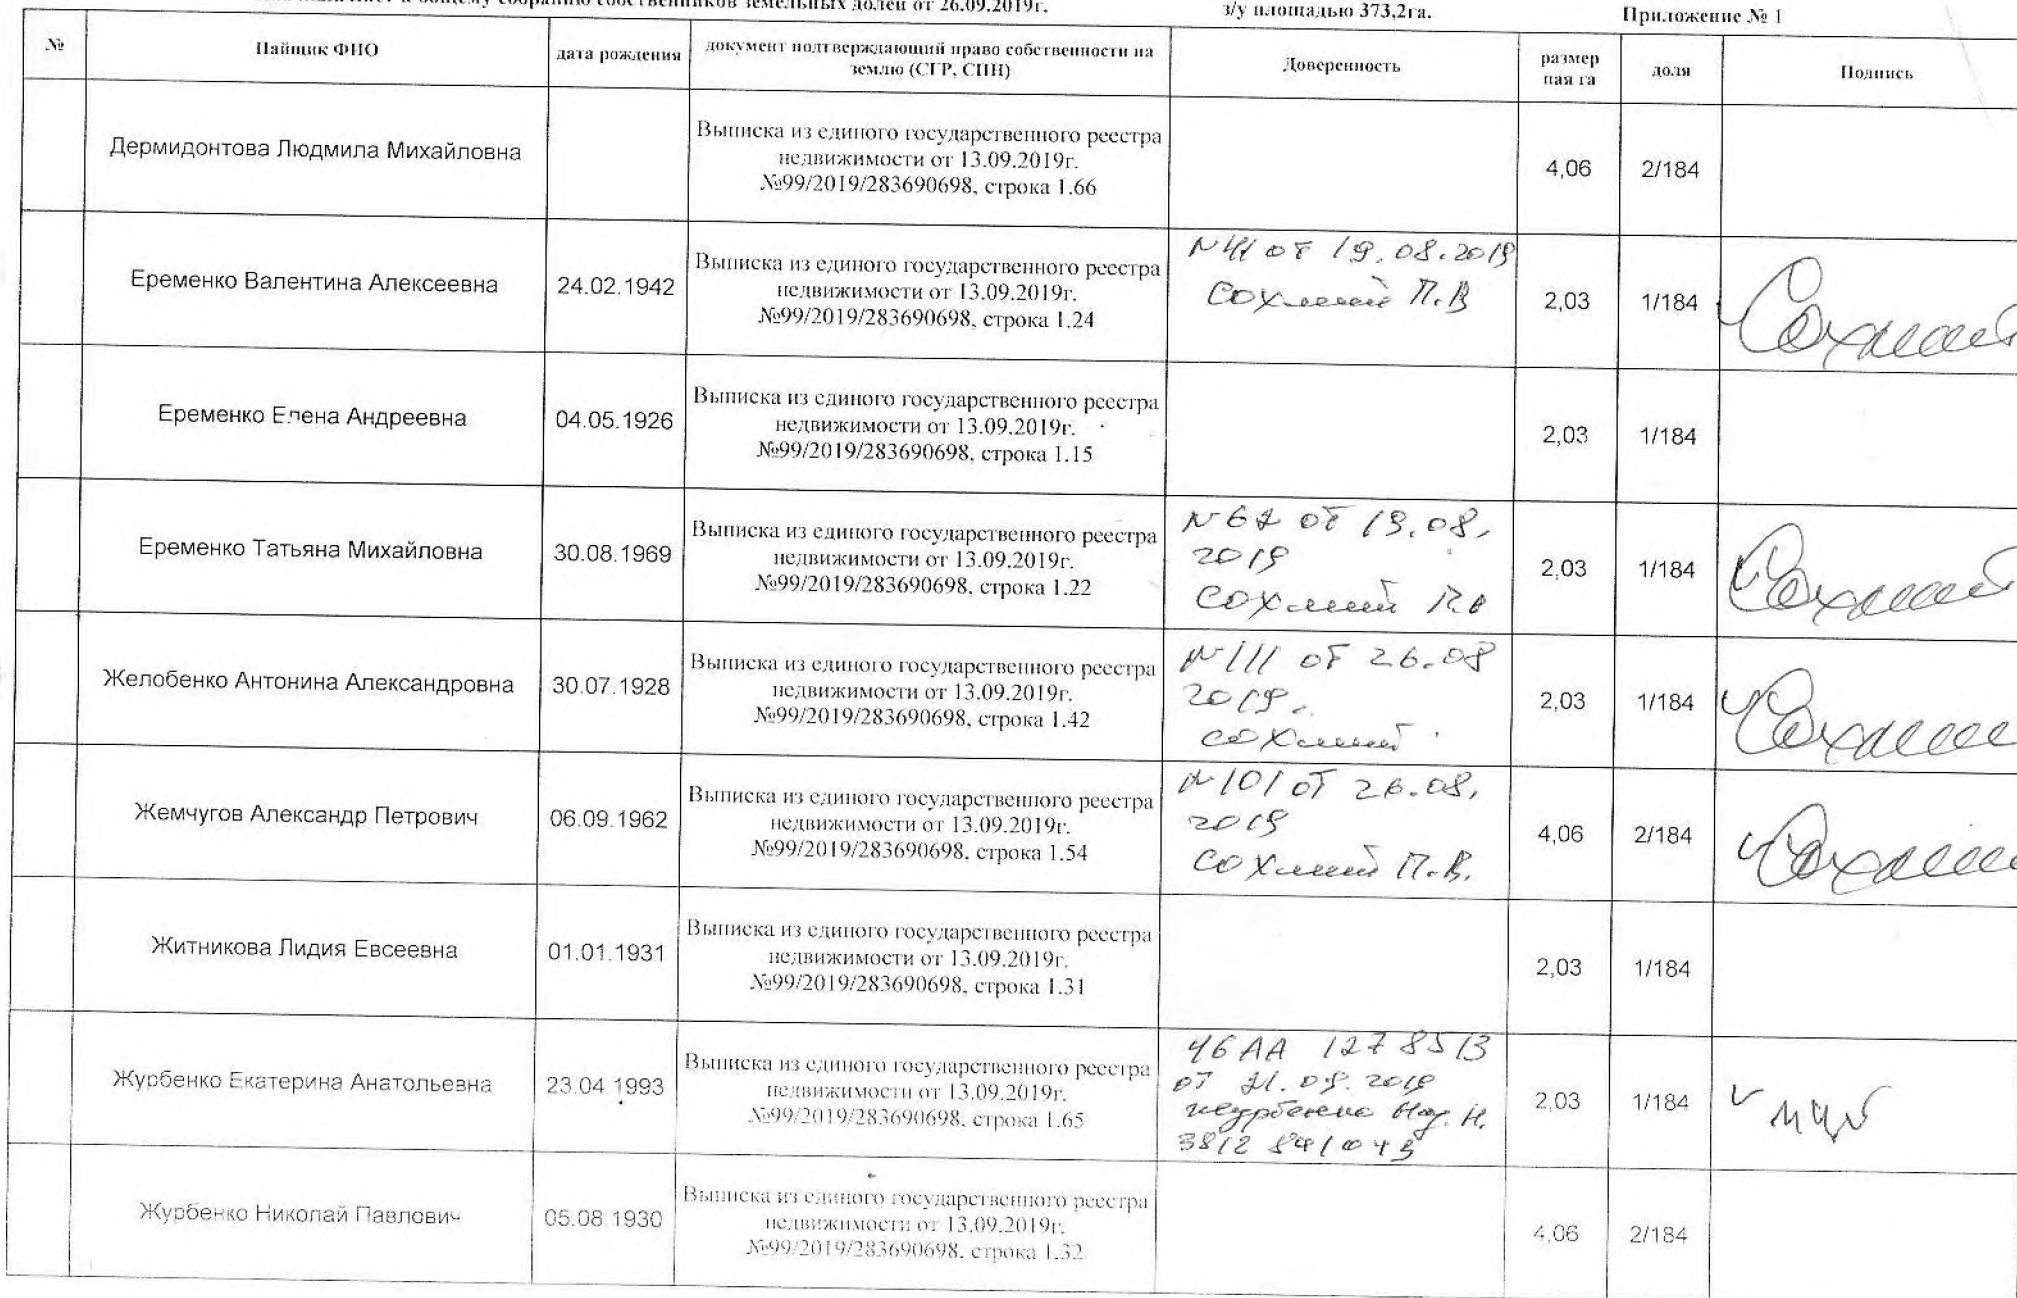 к общему собранию собственников земельных долей от 26.09.2019г. з/у площадью 373,2га. Приложение № 1
№ Пайщик ФИО дата рождения документ подтверждающий право собственности на землю (СГР, СПН) Доверенность размер пая га доля Подпись
Дермидонтова Людмила Михайловна
Выписка из единого государственного реестра
недвижимости от 13.09.2019г.
№99/2019/283690698, строка 1.66
4,06 2/184
Еременко Валентина Алексеевна 24.02.1942
Выписка из единого государственного реестра
недвижимости от 13.09.2019г.
№99/2019/283690698, строка 1.24
N41 от 19.08.2019
Сохлый П.В
2,03 1/184
Еременко Елена Андреевна 04.05.1926
Выписка из единого государственного реестра
недвижимости от 13.09.2019г.
№99/2019/283690698, строка 1.15
2,03 1/184
Еременко Татьяна Михайловна 30.08.1969
Выписка из единого государственного реестра
недвижимости от 13.09.2019г.
№99/2019/283690698, строка 1.22
от 19.08.
2019
2,03 1/184
Желобенко Антонина Александровна 30.07.1928
Выписка из единого государственного реестра
недвижимости от 13.09.2019г.
№99/2019/283690698, строка 1.42
N111 от 26.08
2019.
2,03 1/184
Жемчугов Александр Петрович 06.09.1962
Выписка из единого государственного реестра
недвижимости от 13.09.2019г.
№99/2019/283690698, строка 1.54
N101 от 26.08.
2019
П.В.
4,06 2/184
Житникова Лидия Евсеевна 01.01.1931
Выписка из единого государственного реестра
недвижимости от 13.09.2019г.
№99/2019/283690698, строка 1.31
2,03 1/184
Журбенко Екатерина Анатольевна 23.04.1993
Выписка из единого государственного реестра
недвижимости от 13.09.2019г.
№99/2019/283690698, строка 1.65
46 АА 1278513
от
Журбенко
2,03 1/184
Журбенко Николай Павлович 05.08.1930
Выписка из единого государственного реестра
недвижимости от 13.09.2019г.
№99/2019/283690698, строка 1.32
4,06 2/184